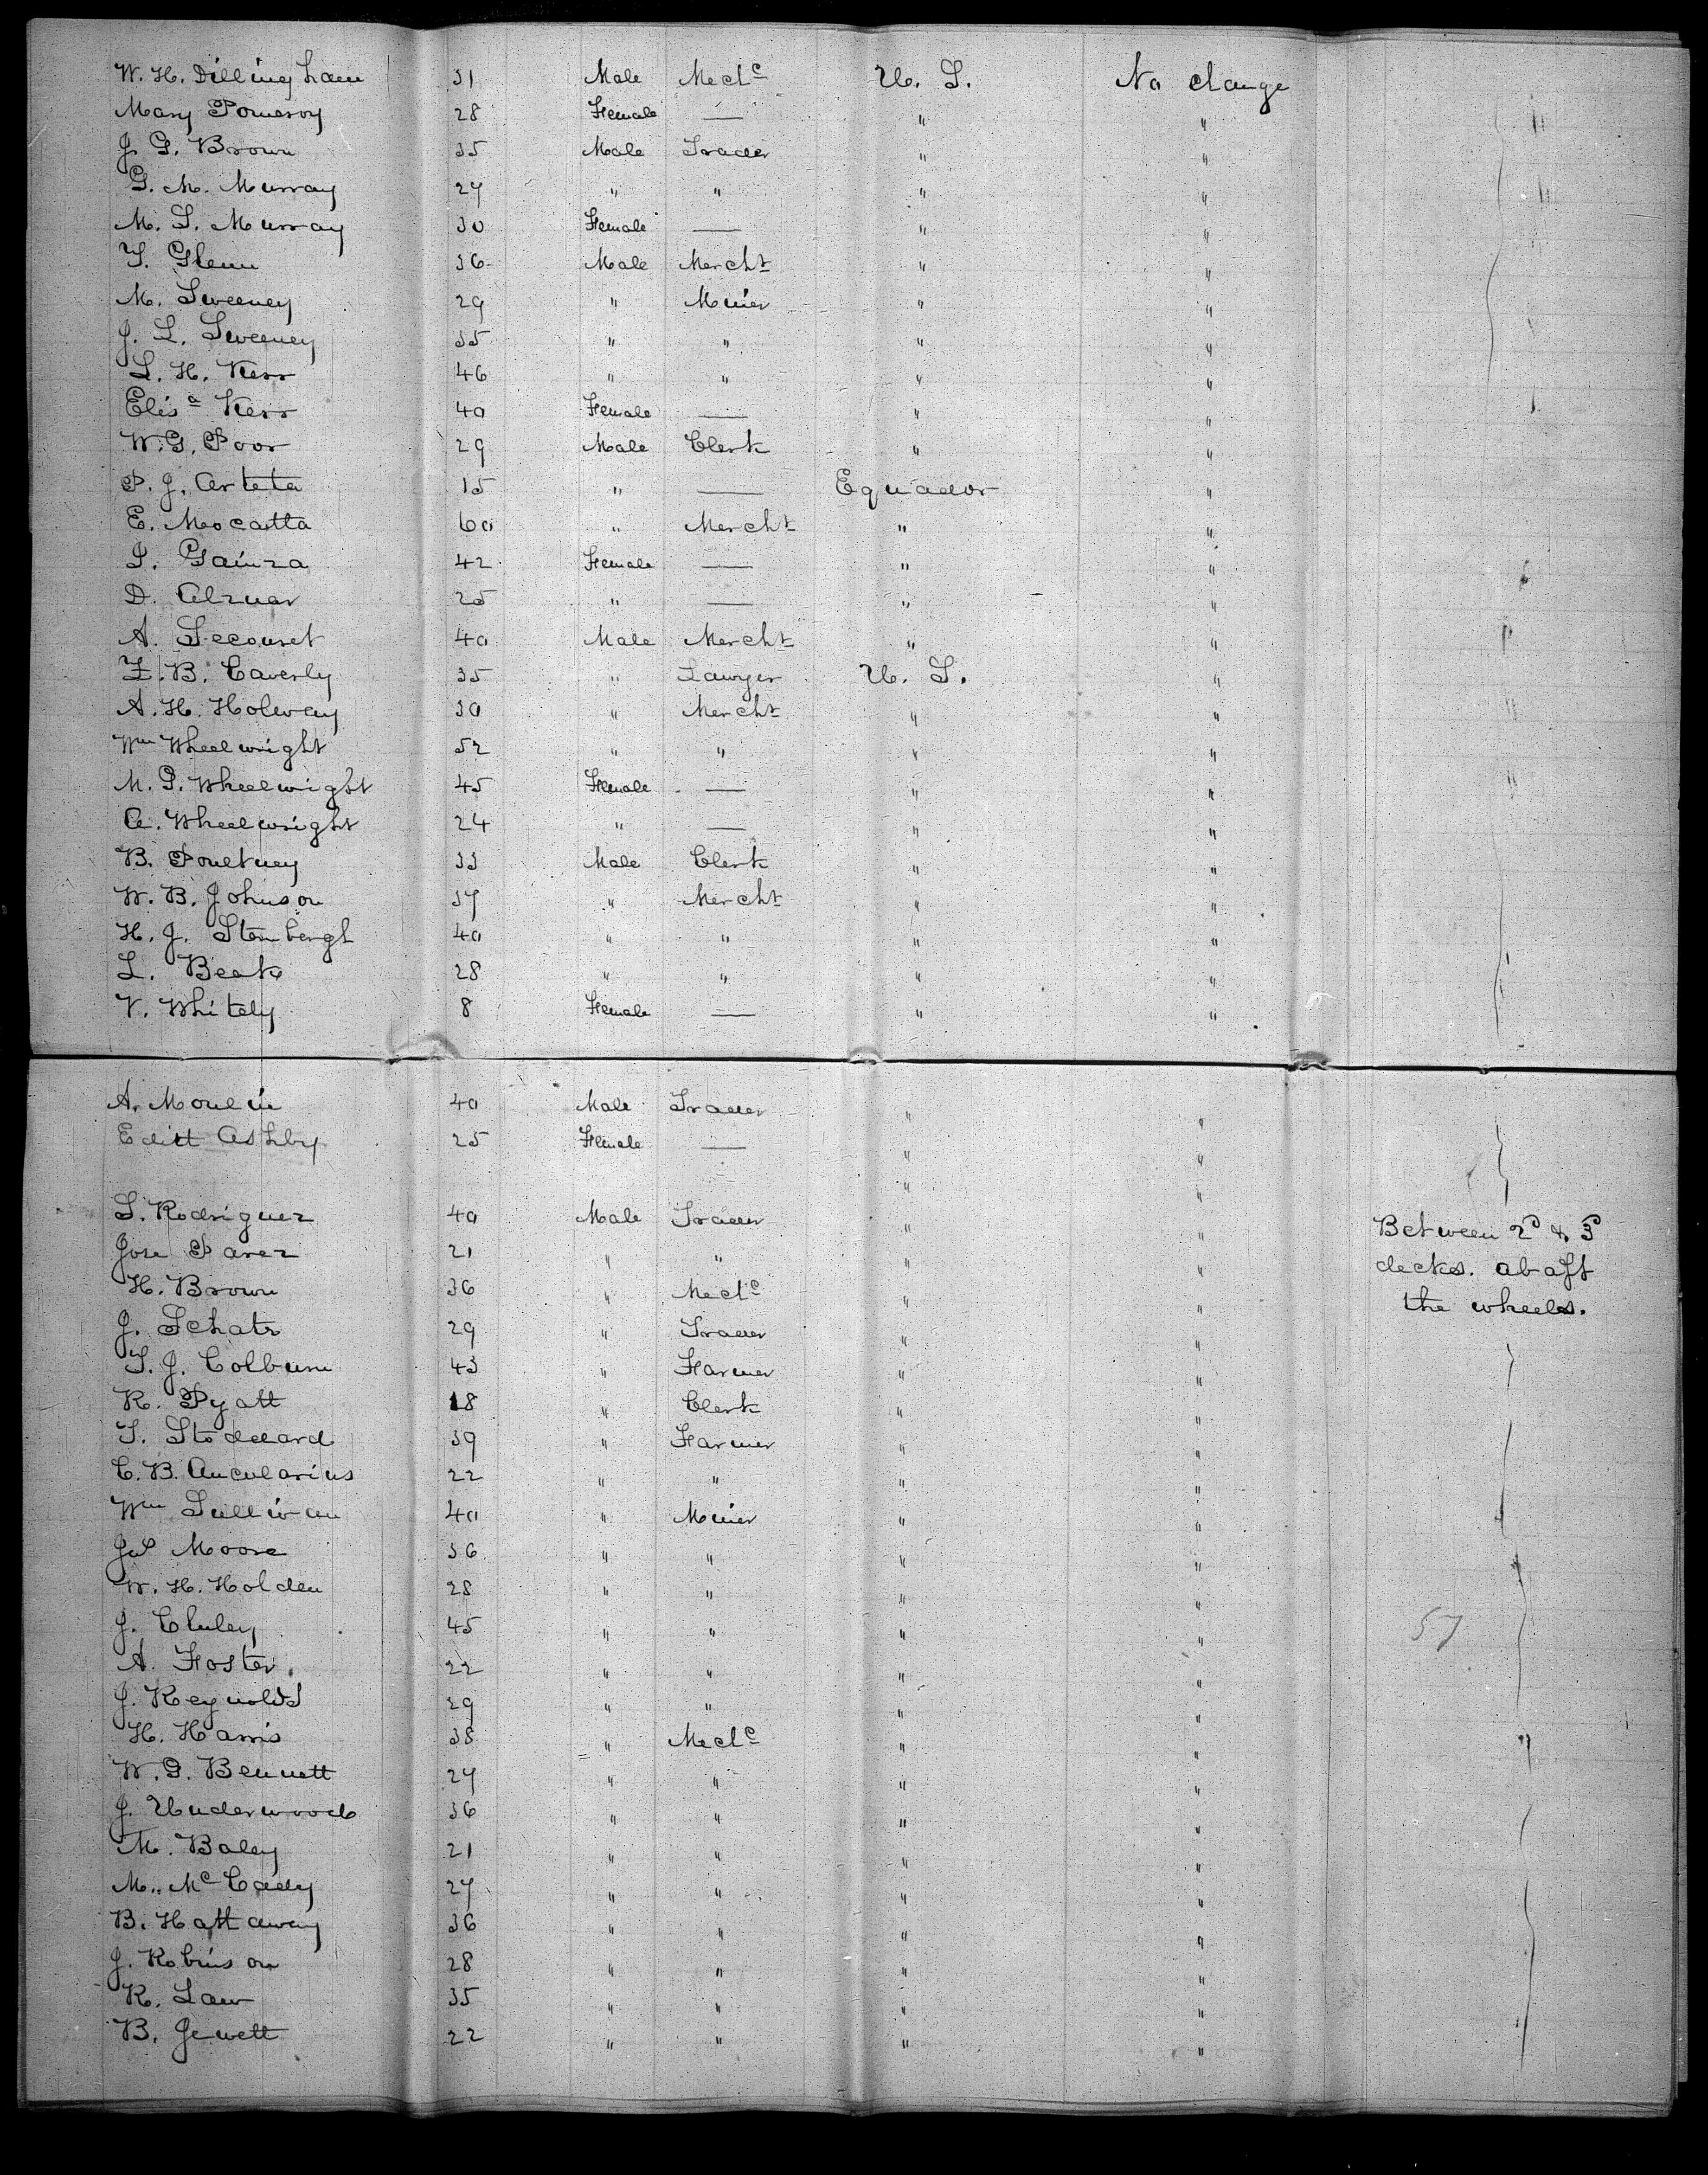 W. H. Dillingham 31 Male Mechc U. S. No change
Mary Pomeroy 28 Female — " "
J. G. Brown 35 Male Trader " "
G. M. Murray 27 " " " "
M. S. Murray 30 Female — " "
T. Glenn 36 Male Mercht " "
M. Sweeney 29 " Miner " "
J. L. Sweeney 35 " " " "
L. H. Kerr 46 " " " "
Elisa Kerr 40 Female — " "
W. G. Poor 29 Male Clerk " "
P. J. Arteta 15 " — Equador "
E. Mocatta 60 " Mercht " "
I. Gainza 42 Female — " "
D. Alzuar 25 " — " "
A. Lecouret 40 Male Mercht " "
Z. B. Caverly 35 " Lawyer U. S. "
A. H. Holway 30 " Mercht " "
Wm Wheelwright 52 " " " "
M. G. Wheelwright 45 Female — " "
A. Wheelwright 24 " — " "
B. Poultney 33 Male Clerk " "
W. B. Johnson 37 " Mercht " "
H. J. Stenbergh 40 " " " "
L. Beck 28 " " " "
V. Whitely 8 Female — " "
A. Moulin 40 Male Trader " "
Edith Ashby 25 Female — " "
" "
S. Rodriguez 40 Male Trader " " Between 2d & 3d
Jose Parez 21 " " " " decks. abaft
H. Brown 36 " Mechc " " the wheels.
J. Schatz 29 " Trader " "
T. J. Colburn 43 " Farmer " "
R. Pyatt 18 " Clerk " "
T. Stoddard 39 " Farmer " "
C. B. Aucularius 22 " " " "
Wm Sullivan 40 " Miner " "
Jas Moore 36 " " " "
W. H. Holden 28 " " " "
J. Cluley 45 " " " " 57
A. Foster 22 " " " "
J. Reynolds 29 " " " "
H. Harris 38 " Mechc " "
W. G. Bennett 27 " " " "
J. Underwood 36 " " " "
M. Baley 21 " " " "
M. McCady 27 " " " "
B. Hattaway 36 " " " "
J. Robinson 28 " " " "
R. Law 35 " " " "
B. Jewett 22 " " " "